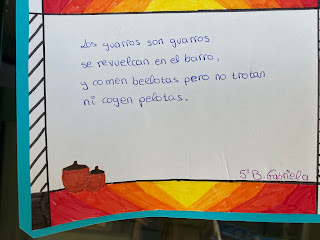 Los guarros son guarros
se revuelcan en el barro,
y comen beelotas pero no trotan
ni cogen pelotas.
5º B. Gabriela